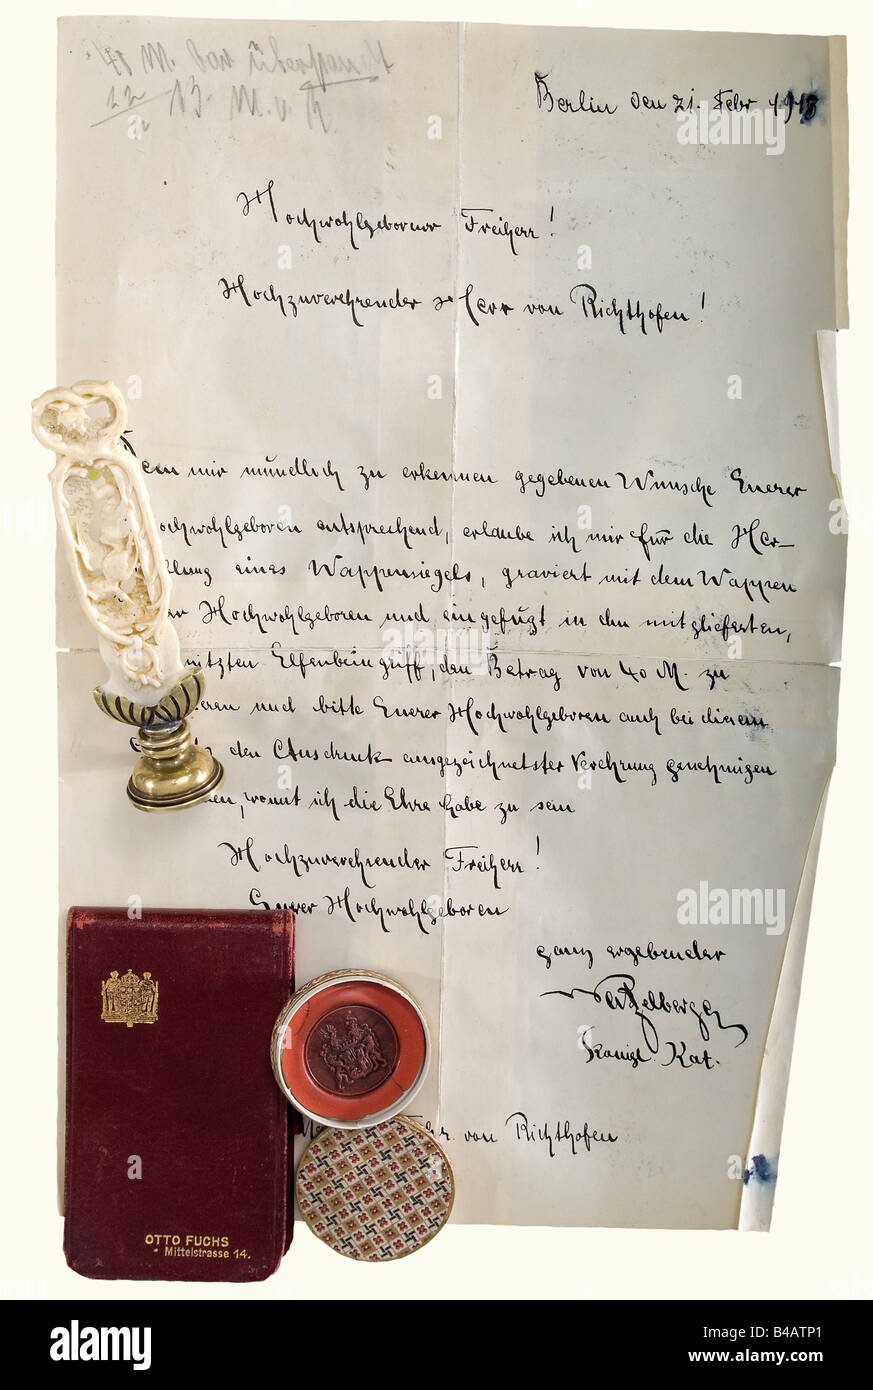 Berlin den 21. Febr 1918
Hochwohlgeborner Freiherr!
Hochzuverehrender Herr von Richthofen!
Dem mir mündlich zu erkennen gegebenen Wunsche Euerer
ochwohlgeboren entsprechend, erlaube ich mir für die Her-
llung eines Wappensiegels, graviert mit dem Wappen
er Hochwohlgeboren und eingefügt in den mitgelieferten,
nitzten Elfenbeingriff, den Betrag von 40 M. zu
eren und bitte Euerer Hochwohlgeboren auch bei diesem
den Ausdruck ausgezeichnetster Verehrung genehmigen
en, womit ich die Ehre habe zu sein
Hochzuverehrender Freiherr!
Euerer Hochwohlgeboren
ganz ergebender
Königl. Rat.
von Richthofen
OTTO FUCHS
Mittelstrasse 14.
alamy
Image ID: B4ATP1
www.alamy.com